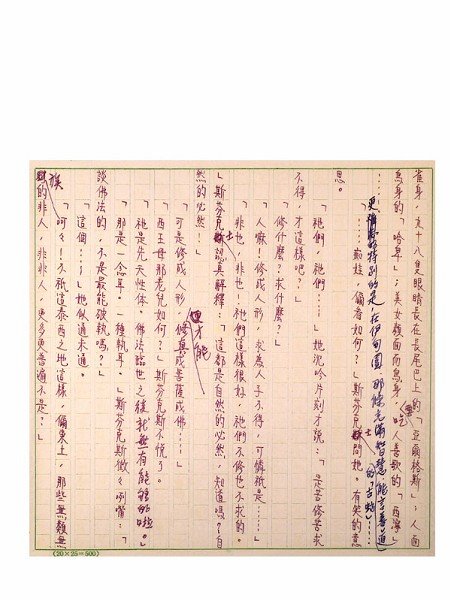 雀身,九十八隻眼睛長在長尾巴上的「亞爾格斯」;人面
鳥身的「哈卑」;美女顏面而鳥身,愛吃人善歌的「西濘」
……
更特別的是,在伊甸園那條充滿智慧、能言善道的「古蛇」……
「……娃,偏看如何?」斯芬克士問她。有笑的意
思。
「祂們,祂們……」她沉吟片刻才說:「是苦修苦求
不得,才這樣吧?」
「修什麼?求什麼?」
「人嘛!修成人形,求為人子不得,可憐祇是……」
「非也,非也!祂們這樣很好,祂們不修也不求的。
」斯芬克士認真解釋:「這都是自然的必然,知道嗎?自
然的必然!」
「可是修成人形,更才能修真成菩薩成佛……」
「西王母那老兒如何?」斯芬克斯不慌了。
「祂是先天性体。佛法臨世之後就無有能够的啦。」
「那是一念耳。一種執耳。」斯芬克斯微々咧嘴:「
談佛法的,不是最能破執嗎?」
「這個……」她似通未通。
「呵々!不祇這泰西之地這樣,偏東土,那些無類無
族的非人,非非人,更多更普遍不是?」
(20×25=500)